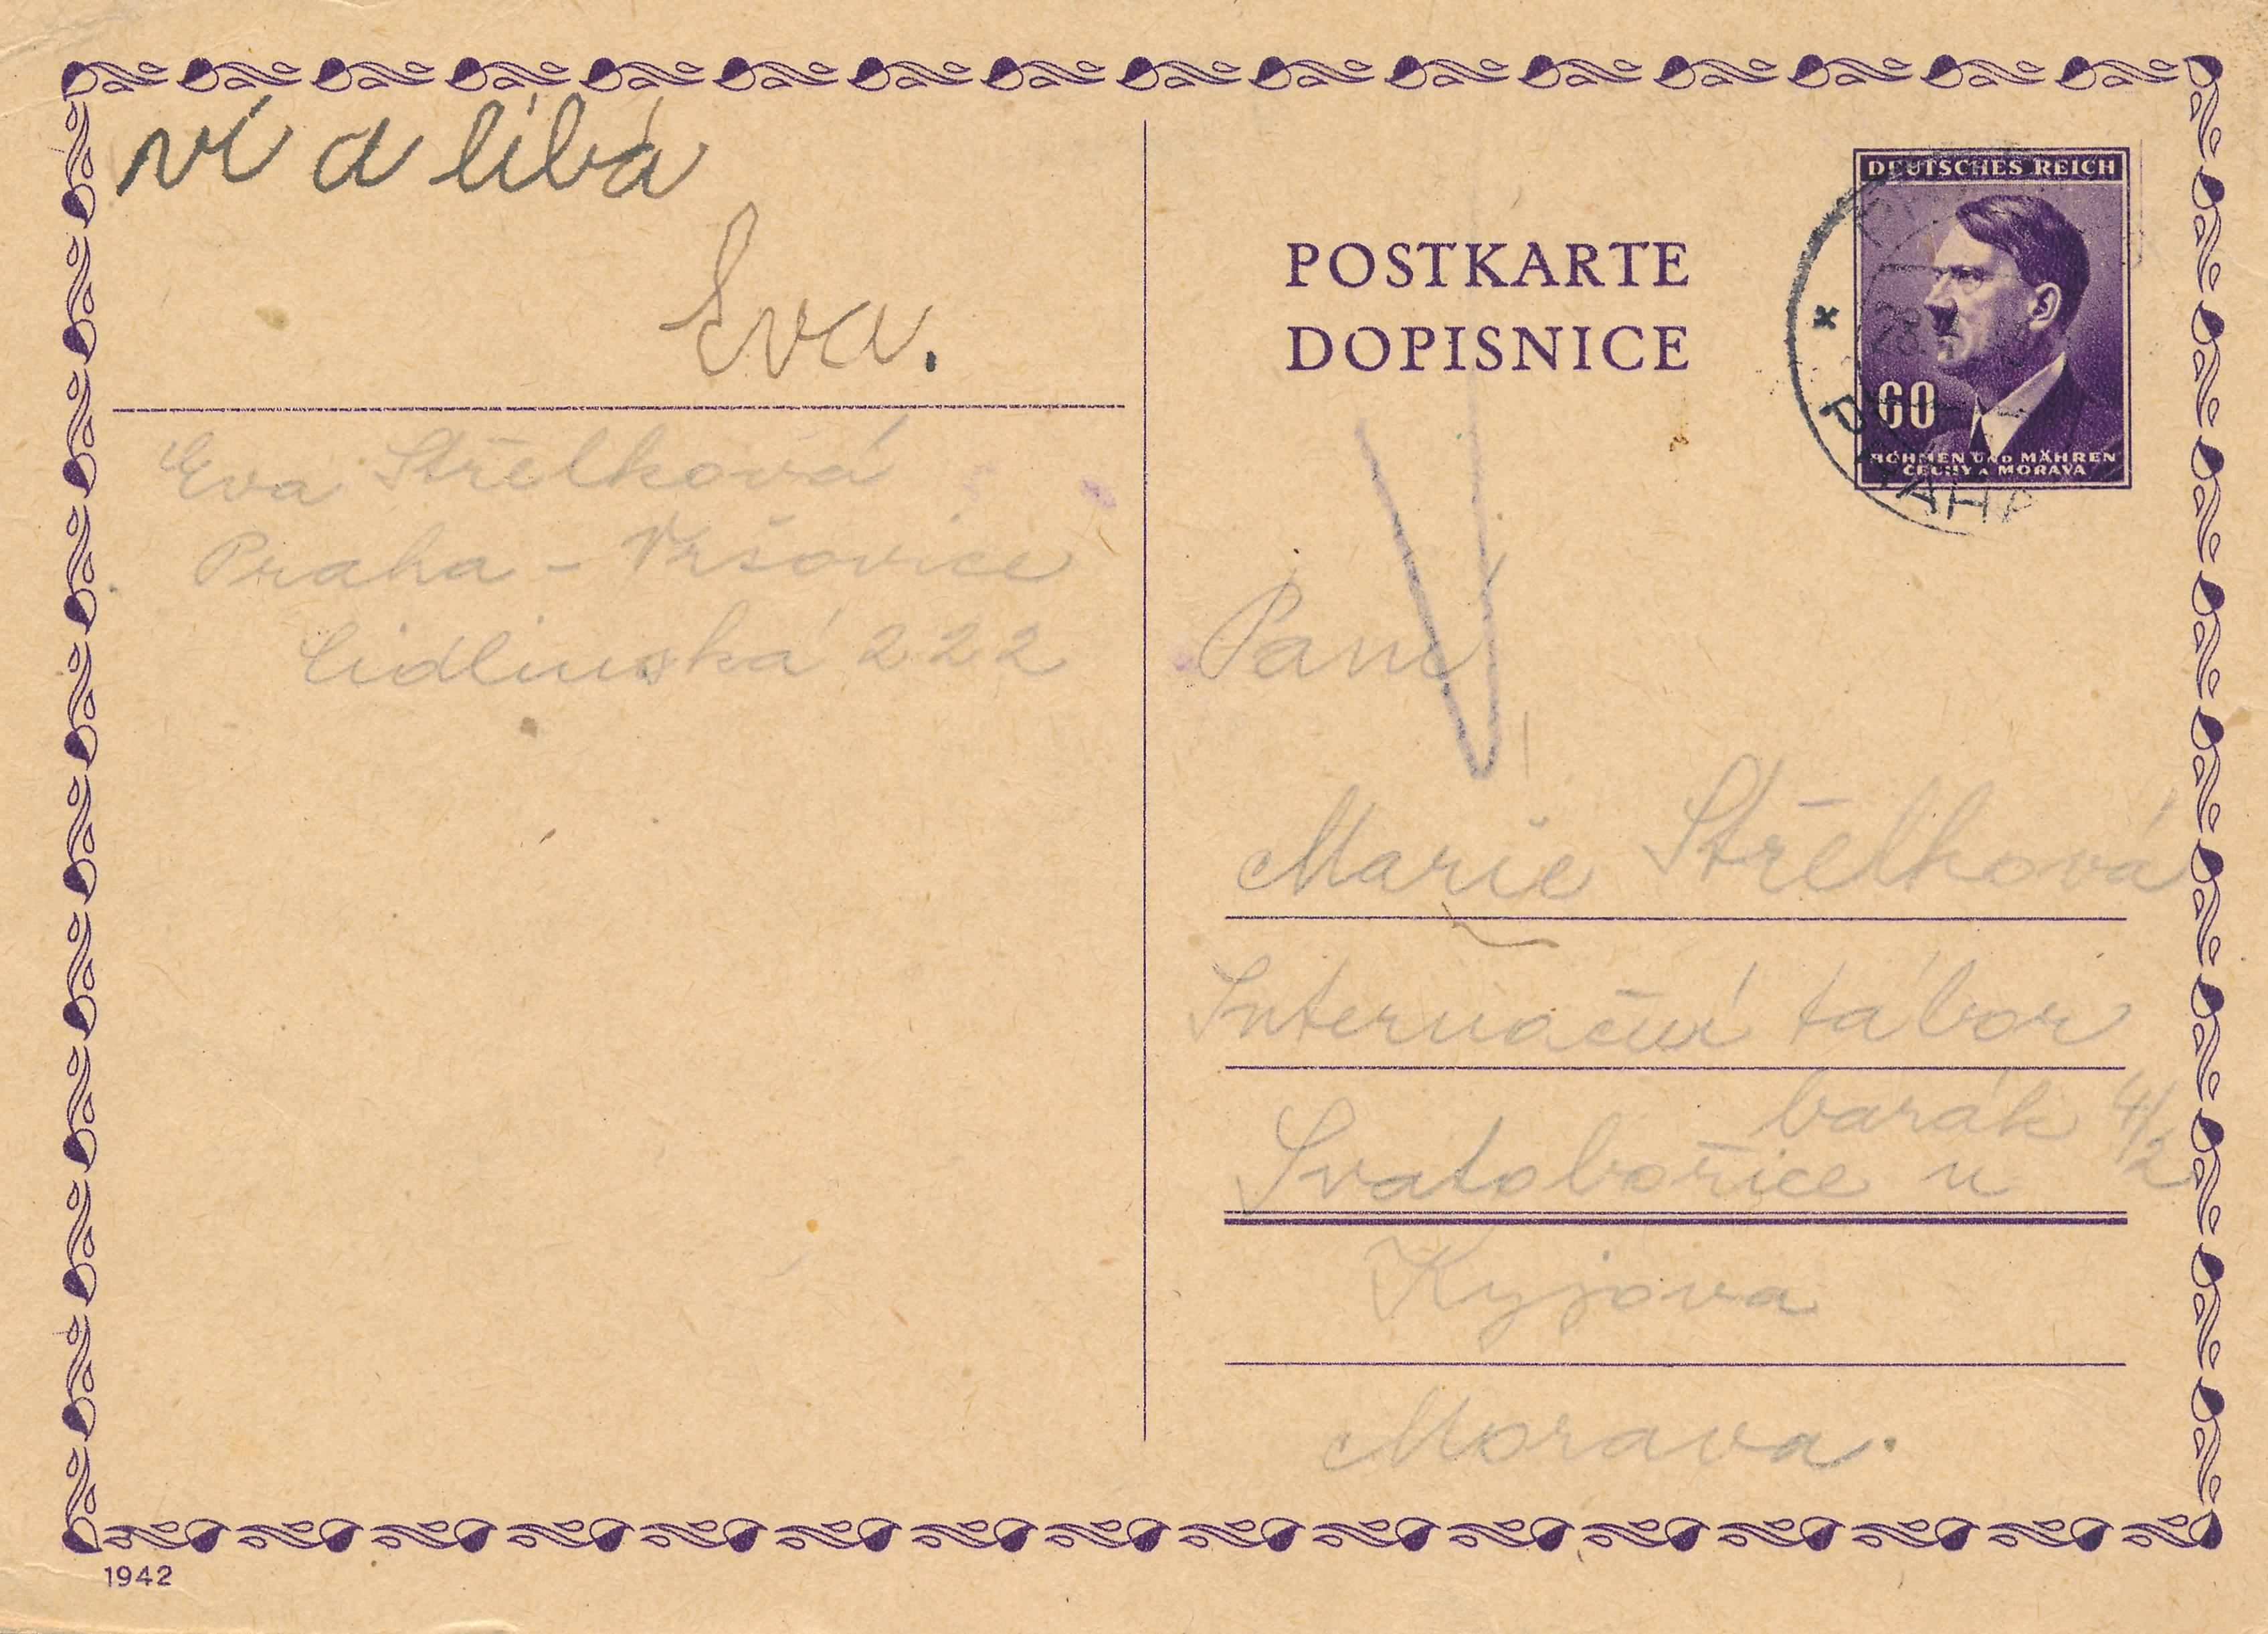 ví a líbá
Eva.
Eva Střelková
Praha - Vršovice
Cidlinská 222
POSTKARTE
DOPISNICE
DEUTSCHES REICH
60
BÖHMEN UND MÄHREN
ČECHY A MORAVA
28.
PRAHA
Paní
Marie Střelková
Internační tábor
barák 4/2
Svatobořice u
Kyjova
Morava.
1942